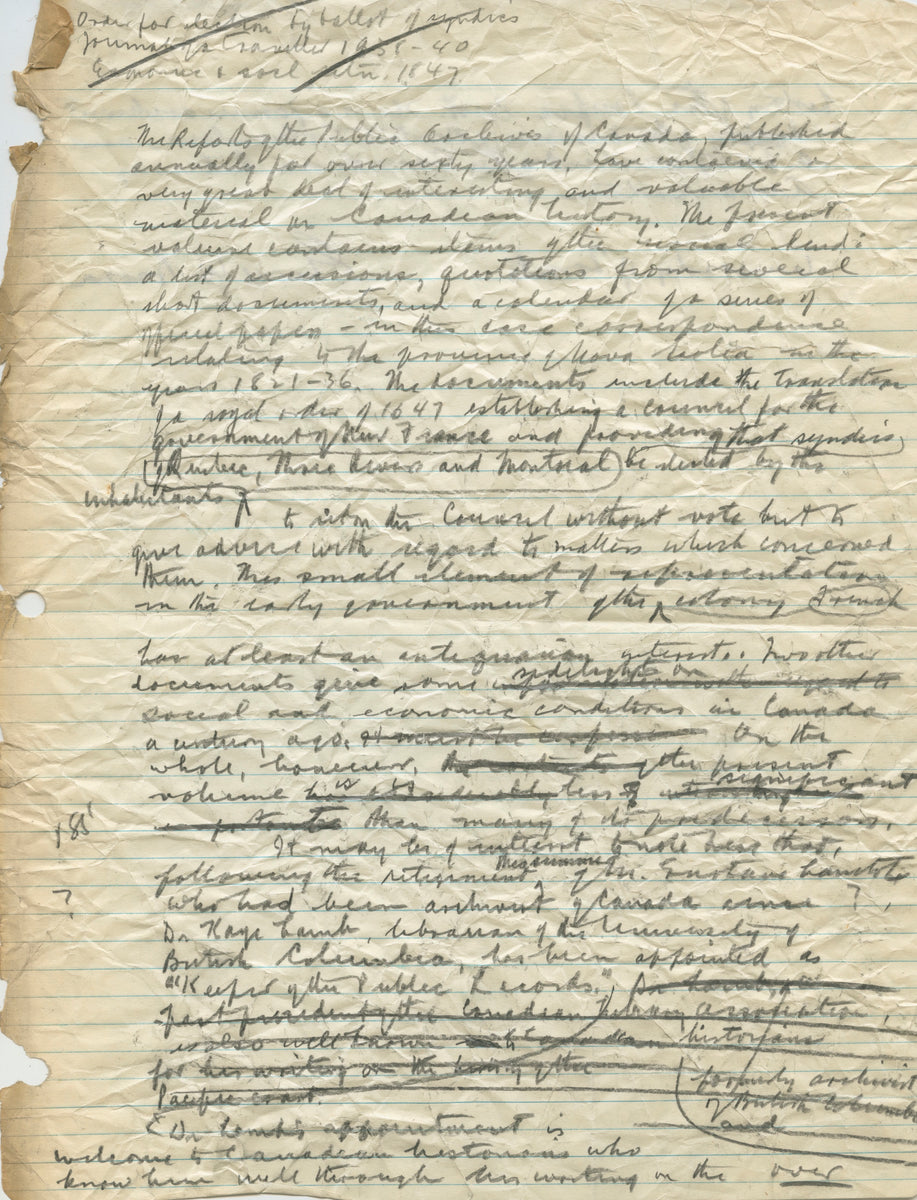 Order for election by ballot of syndics
Journal of a traveller 1938-40
Economic & socl 1847
The Reports of the Public Archives of Canada, published
annually for over sixty years, have contained a
very great deal of interesting and valuable
material on Canadian history. The present
volume contains items of the usual kind:
a list of accessions, quotations from several
short documents, and a calendar of a series of
official papers – in this case correspondence
relating to the province of Nova Scotia in the
years 1821-36. The documents include the translation
of a royal order of 1647 establishing a council for the
government of New France and providing that syndics
of Quebec, Three Rivers and Montreal be elected by the
inhabitants
to sit on the Council without vote but to
give advice with regard to matters which concerned
them. This small element of representation
in the early government of the colony French
has at least an antiquarian interest. Two other
sidelights on
documents give some information with regard to
social and economic conditions in Canada
a century ago. It must be confessed On the
whole, however, the contents of the present
significant
volume is less
important than many of its predecessors.
185'
It may be of interest to note here that,
this summer
following the retirement of Mr. Gustave Lanctot
?
who had been archivist of Canada since ?,
Dr Kaye Lamb, librarian of the University of
British Columbia, has been appointed as
"Keeper of the Public Records". Dr Lamb, a
past president of the Canadian Library Association,
is also well known to Canadian historians
for his writing on the history of the
formerly archivist
Pacific coast.
of British Columbia
and
Dr Lamb's appointment is
welcome to Canadian historians who
know him well through his writing on the over